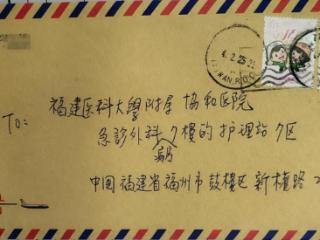 福建医科大學附属 協和医院
To: 急診外科 7樓的护理站 7区
病房
中國福建省福州市鼓樓区 新權路 2